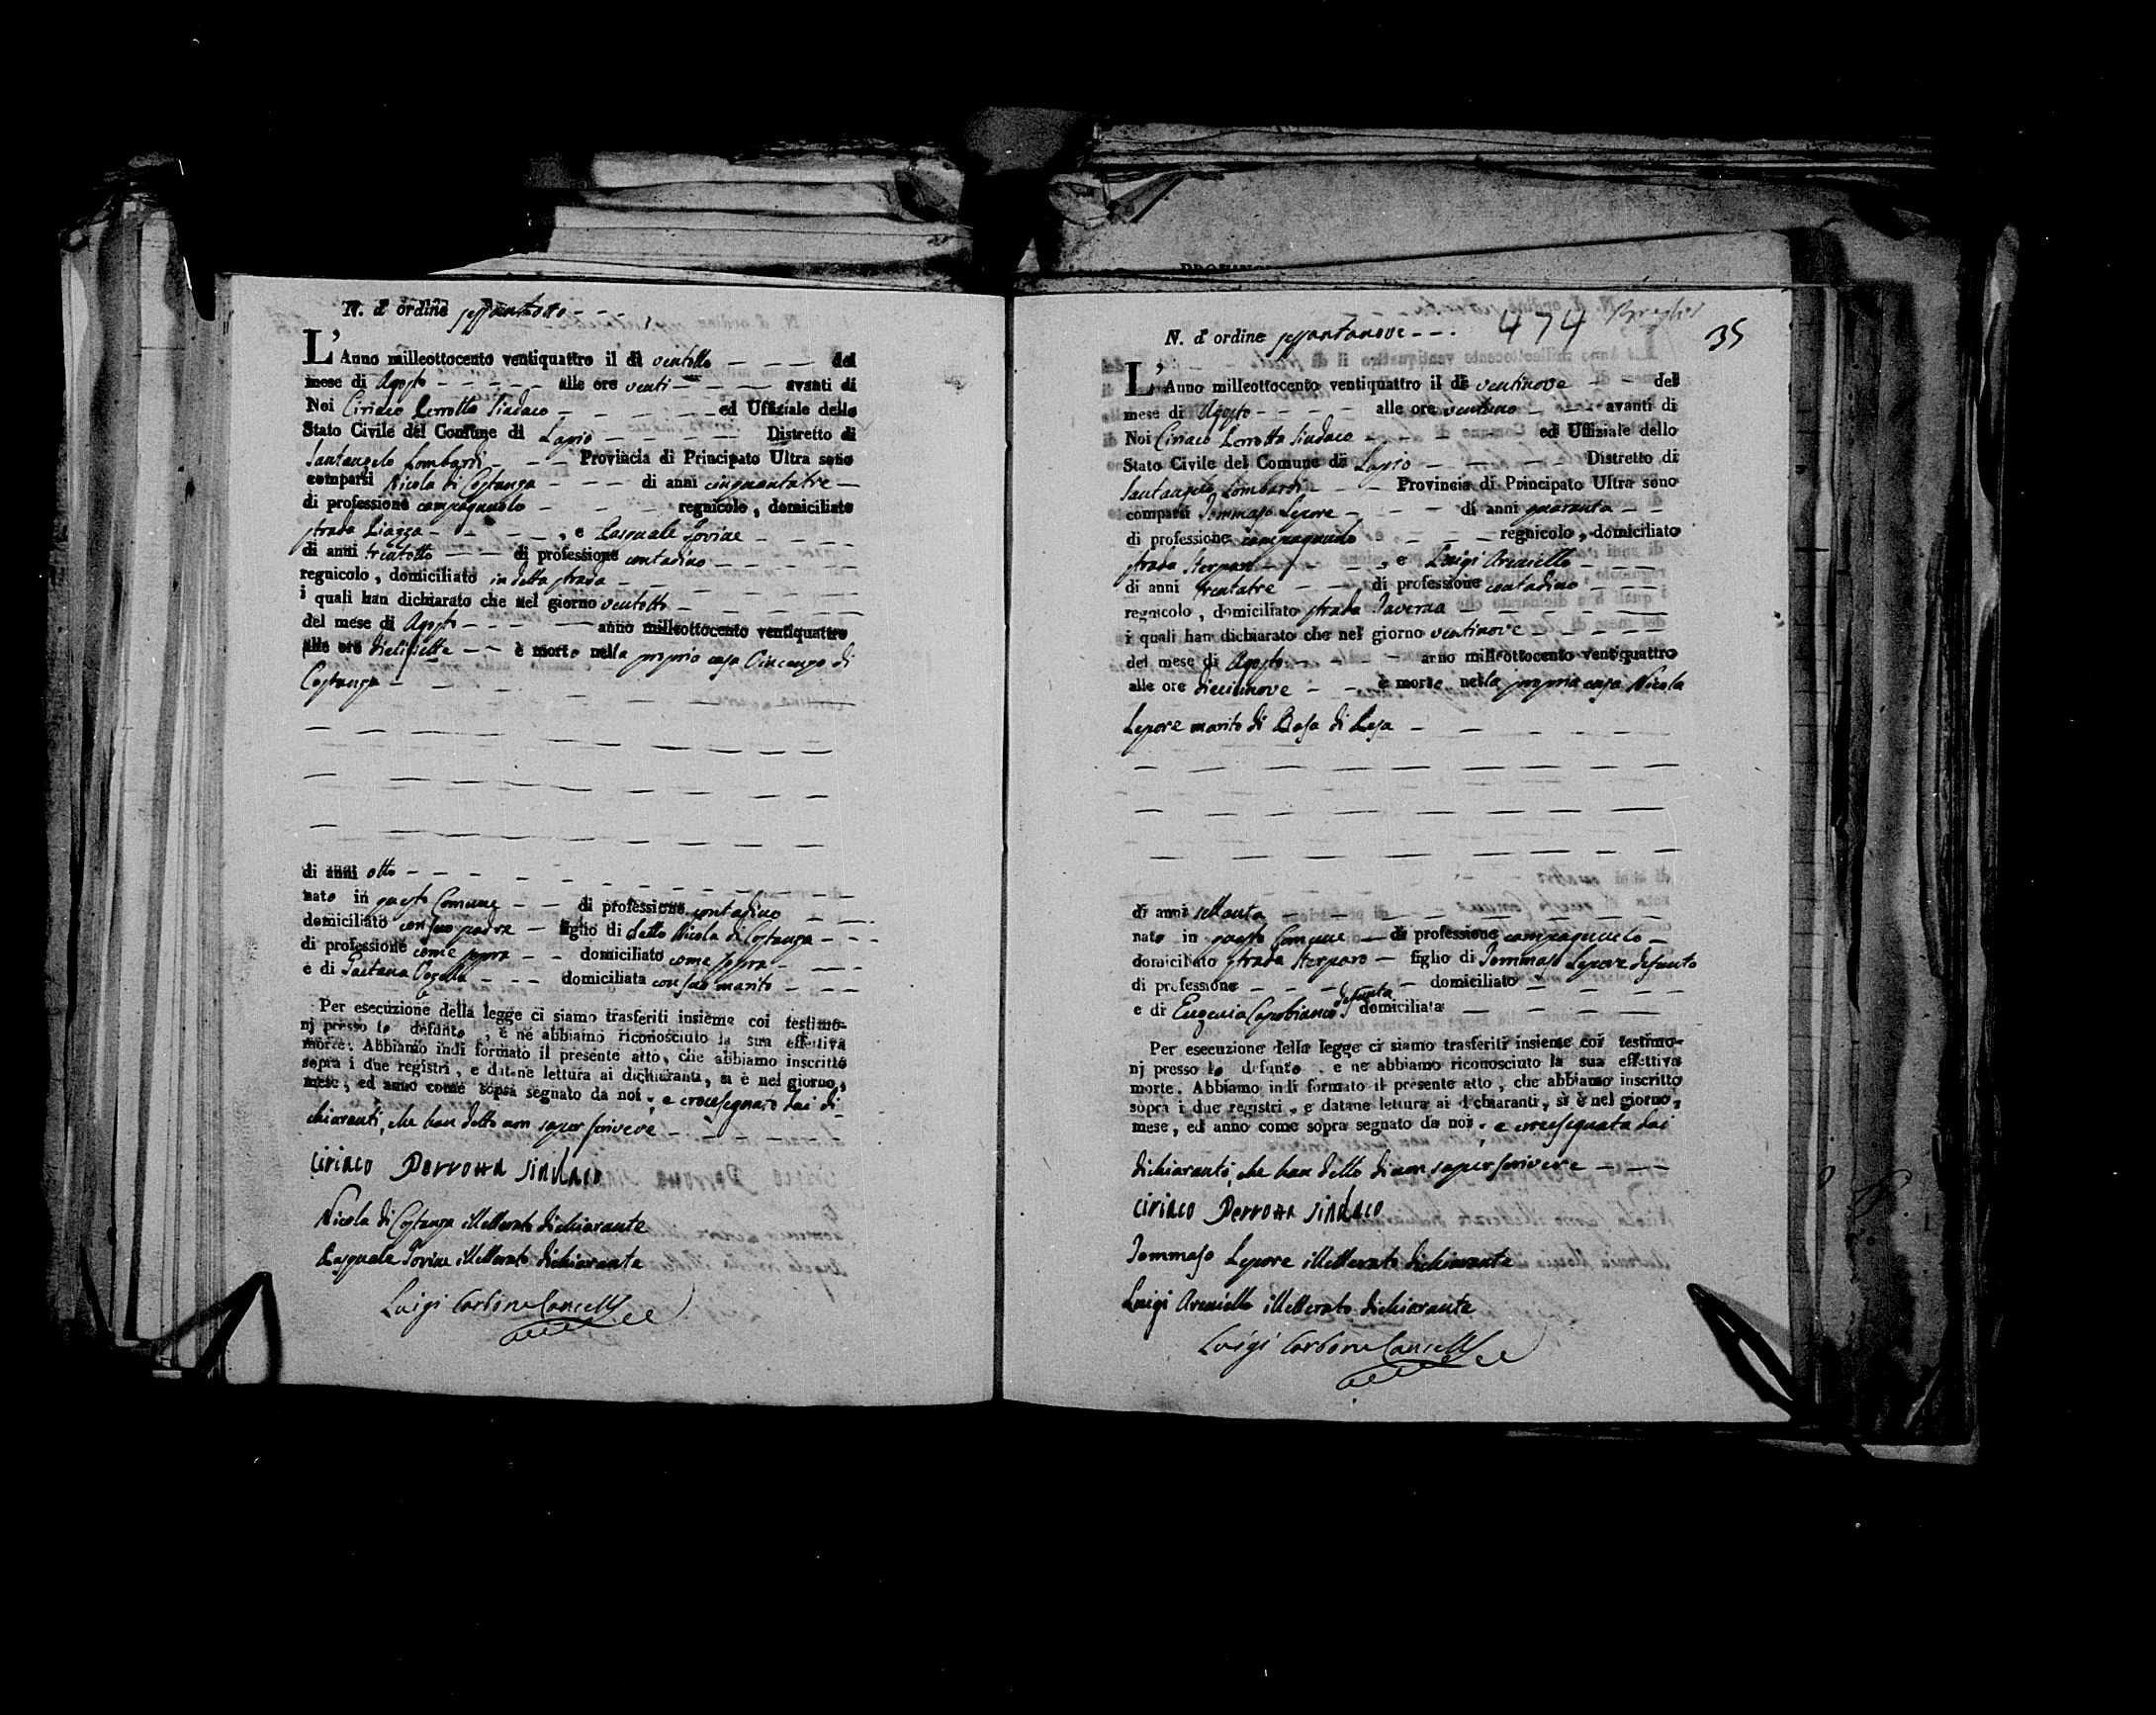 N. d'ordine sessantotto
L'Anno milleottocento ventiquattro il dì ventotto del
mese di Agosto alle ore venti avanti di
Noi Ciriaco Perrotta Sindaco ed Uffiziale dello
Stato Civile del Comune di Lapio Distretto di
Santangelo Lombardi Provincia di Principato Ultra sono
comparsi Nicola di Costanza di anni cinquantatre
di professione campagnuolo regnicolo, domiciliato
strada Piazza, e Pasquale Iovine
di anni trentotto di professione contadino
regnicolo, domiciliato in detta strada
i quali han dichiarato che nel giorno ventotto
del mese di Agosto anno milleottocento ventiquattro
alle ore diecisette è morto nella propria casa Cincenzo di
Costanza
di anni otto
nato in questo Comune di professione contadino
domiciliato con suo padre figlio di detto Nicola di Costanza
di professione come sopra domiciliato come sopra
e di Gaetana domiciliata con suo marito
Per esecuzione della legge ci siamo trasferiti insieme coi testimo-
nj presso lo defunto, e ne abbiamo riconosciuto la sua effettiva
morte. Abbiamo indi formato il presente atto, che abbiamo inscritto
sopra i due registri, e datane lettura ai dichiaranti, si è nel giorno,
mese, ed anno come sopra segnato da noi, e crocesegnato dai di
chiaranti, che han detto non saper scrivere
Ciriaco Perrotta Sindaco
Nicola di Costanza illetterato dichiarante
Pasquale Iovine illetterato dichiarante
Luigi Carbone Cancell
474
35
N. d'ordine sessantanove
L'Anno milleottocento ventiquattro il dì ventinove del
mese di Agosto alle ore ventuno avanti di
Noi Ciriaco Perrotta Sindaco ed Uffiziale dello
Stato Civile del Comune di Lapio Distretto di
Santangelo Lombardi Provincia di Principato Ultra sono
comparsi Tommaso Lepore di anni quaranta
di professione campagnuolo regnicolo, domiciliato
strada Sterparo, e Luigi Arcaniello
di anni trentatre di professione contadino
regnicolo, domiciliato strada Taverna
i quali han dichiarato che nel giorno ventinove
del mese di Agosto anno milleottocento ventiquattro
alle ore diecinnove è morto nella propria casa Nicola
Lepore marito di Rosa di
di anni settanta
nato in questo Comune di professione campagnuolo
domiciliato strada Sterparo figlio di Tommaso Lepore defunto
di professione domiciliato
e di Eugenia Capobianco defunta domiciliata
Per esecuzione della legge ci siamo trasferiti insieme coi testimo-
nj presso lo defunto, e ne abbiamo riconosciuto la sua effettiva
morte. Abbiamo indi formato il presente atto, che abbiamo inscritto
sopra i due registri, e datane lettura ai dichiaranti, si è nel giorno,
mese, ed anno come sopra segnato da noi, e crocesegnata dai
dichiaranti, che han detto di non saper scrivere
Ciriaco Perrotta Sindaco
Tommaso Lepore illetterato dichiarante
Luigi Arcaniello illetterato dichiarante
Luigi Carbone Cancell